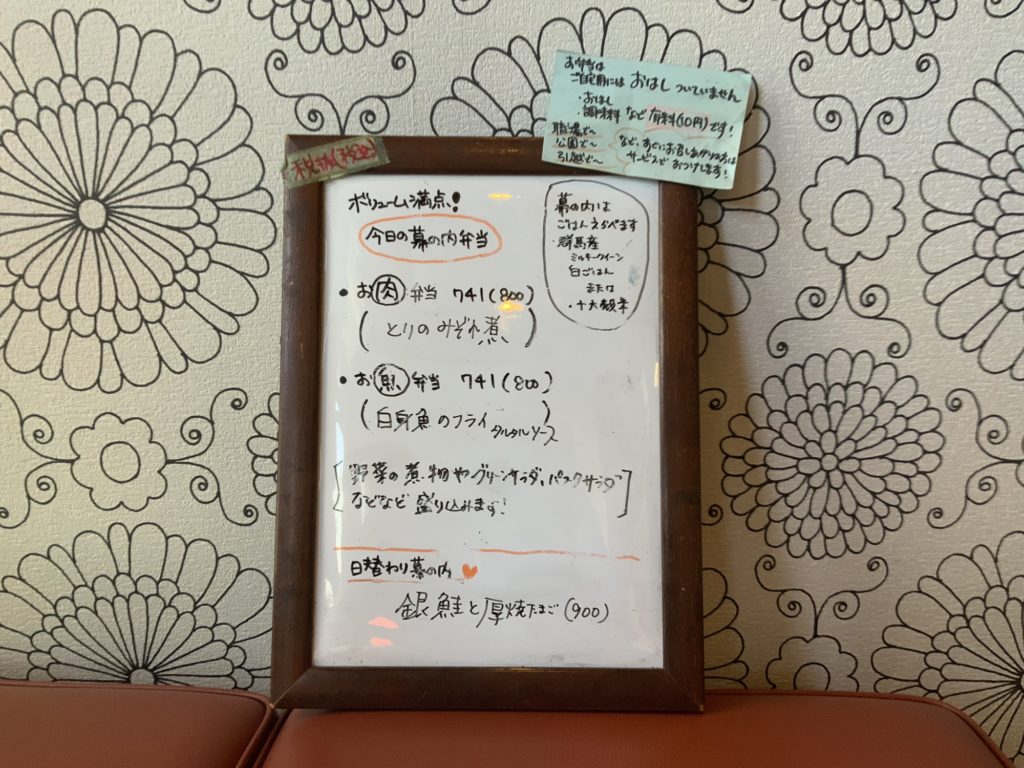 お弁当は
ご自宅用には おはし ついていません
・おはし
・調味料 など 有料(10円)です!
職場で〜
公園で〜
引越で〜
など、すぐにお召しあがりの方は
サービスで おつけします!
税抜(税込)
ボリューム満点!
今日の幕の内弁当
・お肉弁当 741(800)
(とりのみぞれ煮)
・お魚弁当 741(800)
(白身魚のフライ タルタルソース)
[野菜の煮物やグリーンサラダ、パスタサラダ
などなど 盛り込みます!]
幕の内は
ごはんえらべます
・群馬産
ミルキークイーン
白ごはん
または
・十六穀米
日替わり幕の内
銀鮭と厚焼たまご(900)